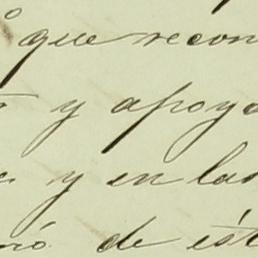 que recon
y apoyo
y en las
de ést